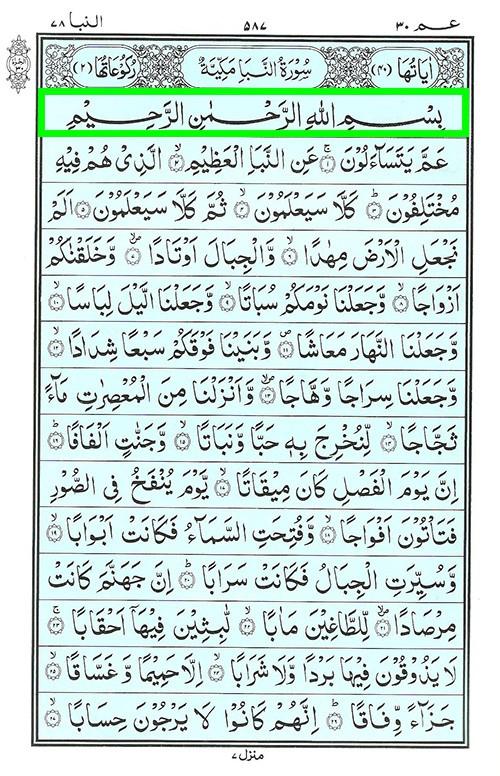 عـم ۳۰ ۵۸۷ النبا ۷۸
اٰیَاتُهَا (۴۰) سُوْرَةُ النَّبَاِ مَكِّیَّةٌ رُكُوْعَاتُهَا (۲)
بِسْـــمِ اللّٰهِ الرَّحْـمٰنِ الرَّحِـیْـمِ
عَمَّ یَتَسَآءَلُوْنَ ۚ‏﴿۱﴾ عَنِ النَّبَاِ الْعَظِیْمِ ۙ‏﴿۲﴾ الَّذِیْ هُمْ فِیْهِ
مُخْتَلِفُوْنَ ؕ‏﴿۳﴾ كَلَّا سَیَعْلَمُوْنَ ۙ‏﴿۴﴾ ثُمَّ كَلَّا سَیَعْلَمُوْنَ ﴿۵﴾ اَلَمْ
نَجْعَلِ الْاَرْضَ مِهٰدًا ۙ‏﴿۶﴾ وَّالْجِبَالَ اَوْتَادًا ۪ۙ‏﴿۷﴾ وَّخَلَقْنٰكُمْ
اَزْوَاجًا ۙ‏﴿۸﴾ وَّجَعَلْنَا نَوْمَكُمْ سُبَاتًا ۙ‏﴿۹﴾ وَّجَعَلْنَا الَّیْلَ لِبَاسًا ۙ‏﴿۱۰﴾
وَّجَعَلْنَا النَّهَارَ مَعَاشًا ۪‏﴿۱۱﴾ وَّبَنَیْنَا فَوْقَكُمْ سَبْعًا شِدَادًا ۙ‏﴿۱۲﴾
وَّجَعَلْنَا سِرَاجًا وَّهَّاجًا ۪ۙ‏﴿۱۳﴾ وَّاَنْزَلْنَا مِنَ الْمُعْصِرٰتِ مَآءً
ثَجَّاجًا ۙ‏﴿۱۴﴾ لِّنُخْرِجَ بِهٖ حَبًّا وَّنَبَاتًا ۙ‏﴿۱۵﴾ وَّجَنّٰتٍ اَلْفَافًا ؕ‏﴿۱۶﴾
اِنَّ یَوْمَ الْفَصْلِ كَانَ مِیْقَاتًا ۙ‏﴿۱۷﴾ یَّوْمَ یُنْفَخُ فِی الصُّوْرِ
فَتَاْتُوْنَ اَفْوَاجًا ۙ‏﴿۱۸﴾ وَّفُتِحَتِ السَّمَآءُ فَكَانَتْ اَبْوَابًا ۙ‏﴿۱۹﴾
وَّسُیِّرَتِ الْجِبَالُ فَكَانَتْ سَرَابًا ؕ‏﴿۲۰﴾ اِنَّ جَهَنَّمَ كَانَتْ
مِرْصَادًا ۪ۙ‏﴿۲۱﴾ لِّلطَّاغِیْنَ مَاٰبًا ۙ‏﴿۲۲﴾ لّٰبِثِیْنَ فِیْهَاۤ اَحْقَابًا ۚ‏﴿۲۳﴾
لَا یَذُوْقُوْنَ فِیْهَا بَرْدًا وَّلَا شَرَابًا ۙ‏﴿۲۴﴾ اِلَّا حَمِیْمًا وَّغَسَّاقًا ۙ‏﴿۲۵﴾
جَزَآءً وِّفَاقًا ؕ‏﴿۲۶﴾ اِنَّهُمْ كَانُوْا لَا یَرْجُوْنَ حِسَابًا ۙ‏﴿۲۷﴾
منزل ۷